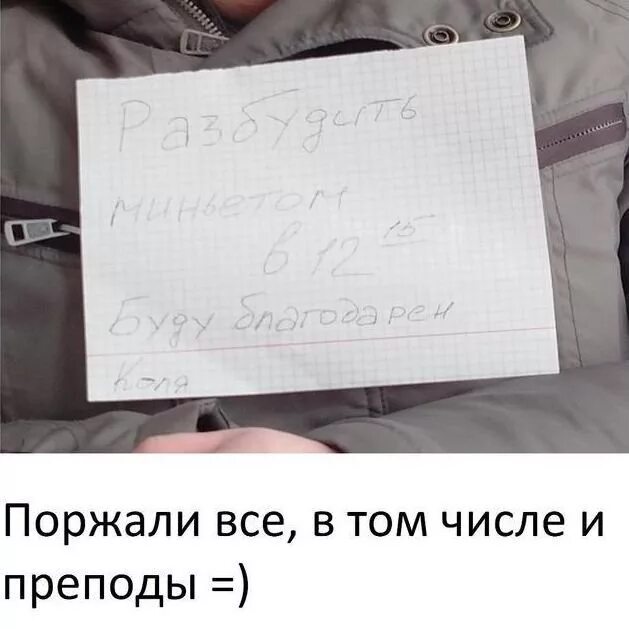 Разбудить
миньетом
в 12 15
Буду благодарен
Коля
Поржали все, в том числе и
преподы =)